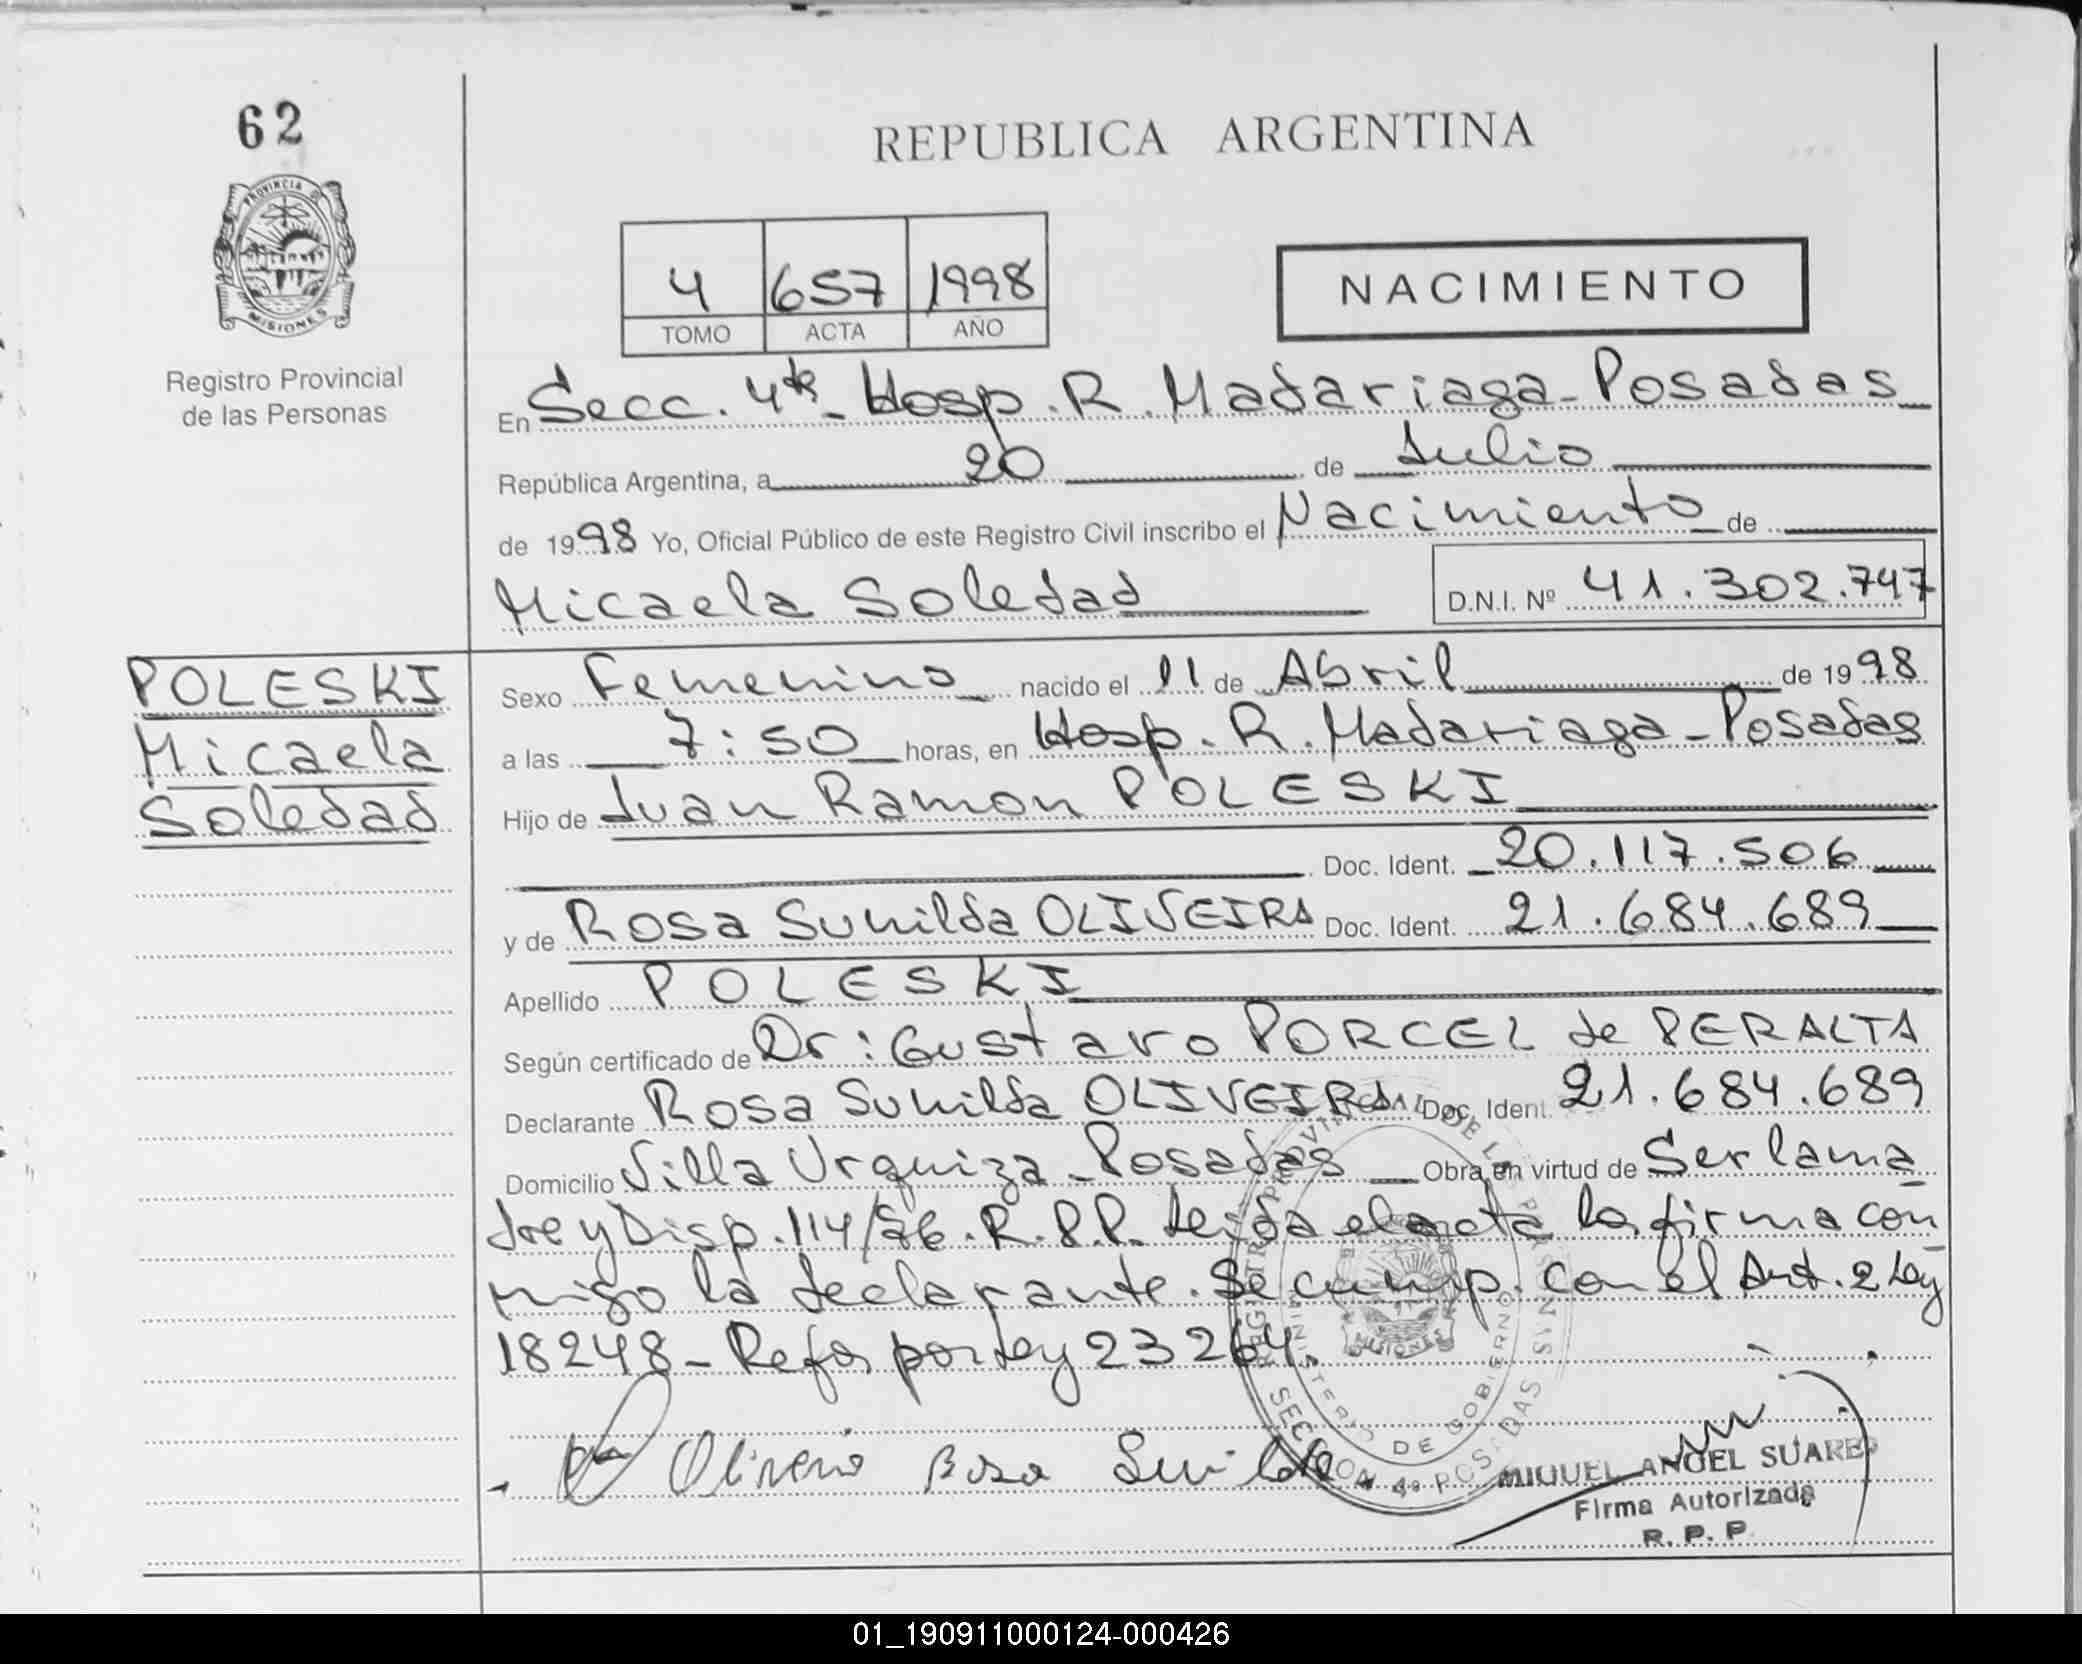 62
PROVINCIA DE
MISIONES
Registro Provincial
de las Personas
REPUBLICA ARGENTINA
4 657 1998
TOMO ACTA AÑO
NACIMIENTO
En Secc. 4ta - Hosp. R. Madariaga - Posadas
República Argentina, a 20 de Julio
de 1998 Yo, Oficial Público de este Registro Civil inscribo el Nacimiento de
Micaela Soledad D.N.I. Nº 41.302.747
POLESKI
Micaela
Soledad
Sexo Femenino nacido el 11 de Abril de 1998
a las 7:50 horas, en Hosp. R. Madariaga - Posadas
Hijo de Juan Ramon POLESKI
Doc. Ident. 20.117.506
y de Rosa Sunilda OLIVEIRA Doc. Ident. 21.684.689
Apellido POLESKI
Según certificado de Dr: Gustavo PORCEL de PERALTA
Declarante Rosa Sunilda OLIVEIRA Doc. Ident. 21.684.689
Domicilio Villa Urquiza - Posadas Obra en virtud de Ser la ma
dre y Disp. 114/96. R.P.P. Leida el acta la firma con
migo la declarante. Se cump. con el Art. 2 Ley
18248 - Refor por Ley 23264.
Rosa Sunilda
REGISTRO PROVINCIAL DE LAS PERSONAS
MINISTERIO DE GOBIERNO
MISIONES
SECCION 4º POSADAS
MIGUEL ANGEL SUARES
Firma Autorizada
R. P. P.
01_190911000124-000426